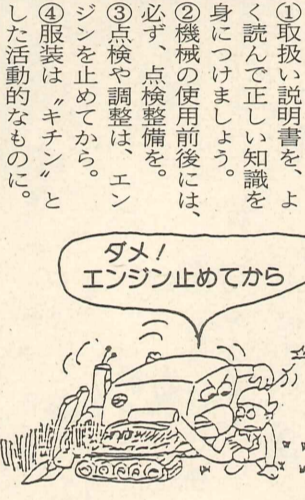 ①取扱い説明書を、よ
く読んで正しい知識を
身につけましょう。
②機械の使用前後には、
必ず、点検整備を。
③点検や調整は、エン
ジンを止めてから。
④服装は〝キチン〟と
した活動的なものに。
ダメ！
エンジン止めてから